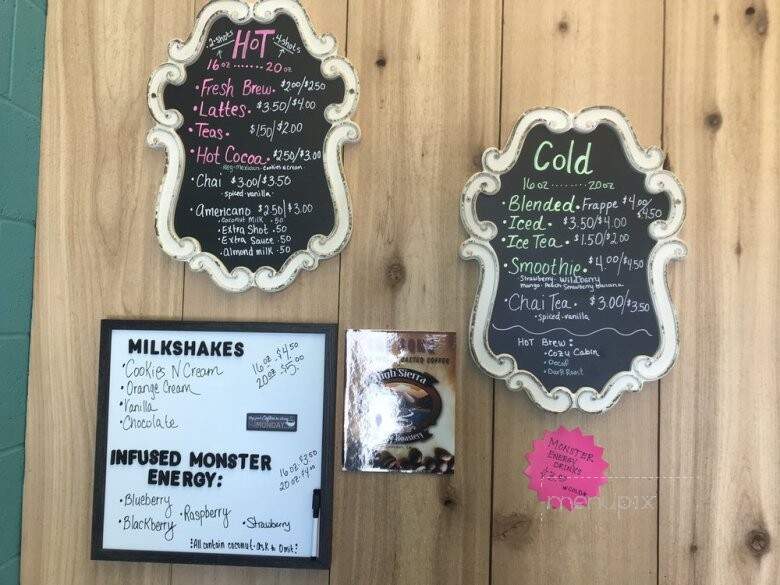 2-shots HOT 4-shots
16 oz ....... 20 oz
• Fresh Brew • $2.00/$2.50
• Lattes • $3.50/$4.00
• Teas • $1.50/$2.00
• Hot Cocoa • $2.50/$3.00
Reg-Mexican-Cookies n cream
• Chai $3.00/$3.50
• spiced-vanilla •
• Americano $2.50|$3.00
• Coconut Milk .50
• Extra Shot .50
• Extra Sauce .50
• almond milk .50
Cold
16 oz ........ 20 oz
• Blended • Frappe $4.00/$4.50
• Iced • $3.50/$4.00
• Ice Tea • $1.50/$2.00
• Smoothie • $4.00/$4.50
Strawberry - Wildberry
mango - Peach Strawberry banana
• Chai Tea • $3.00/$3.50
• spiced-vanilla
HOT Brew:
• Cozy Cabin
• Decaf
• Dark Roast
MILKSHAKES
• Cookies N Cream
16 oz - $4.50
20 oz - $5.00
• Orange Cream
• Vanilla
• Chocolate
MONDAY
INFUSED MONSTER
ENERGY:
16 oz - $3.50
20 oz - $4.00
• Blueberry
• Raspberry
• Blackberry
• Strawberry
! All contain coconut - ask to Omit !
ROASTED COFFEE
High Sierra
Roasters
MONSTER
ENERGY
DRINKS
menupix